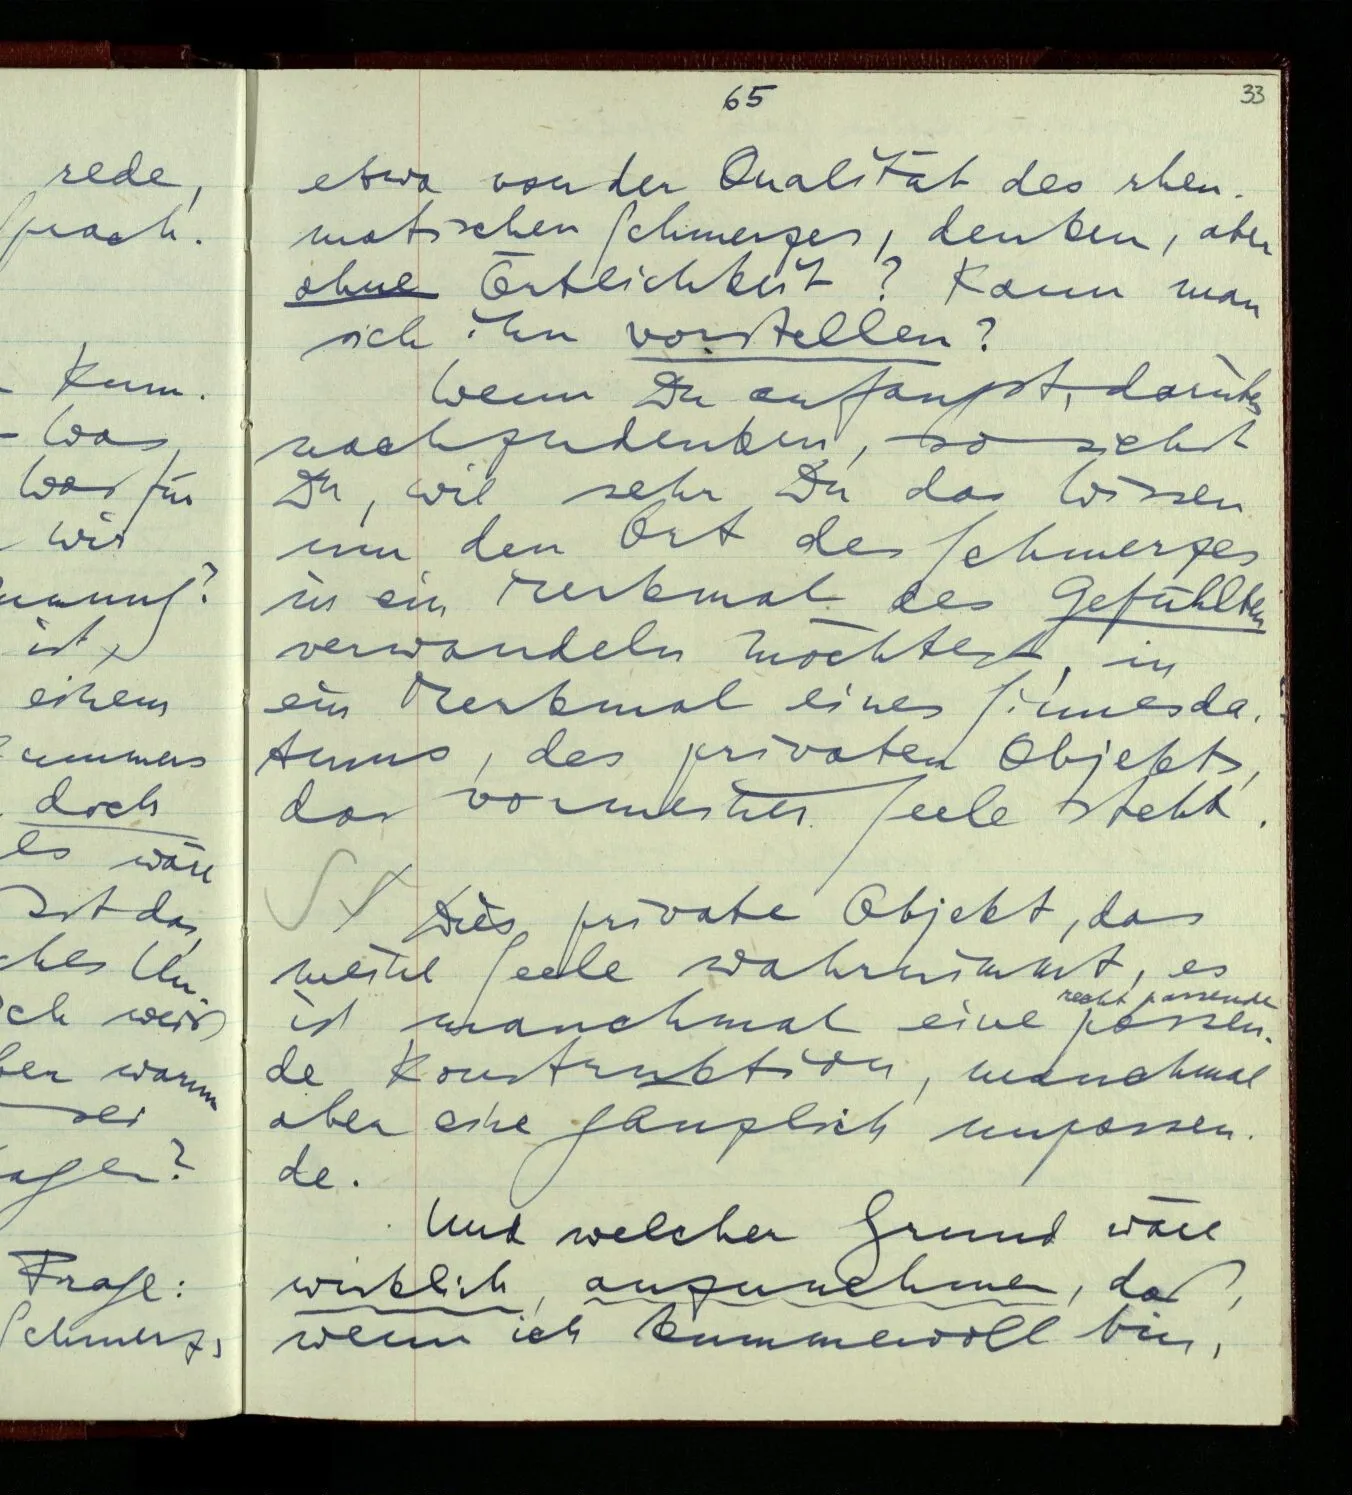 rede,
sprach.
Kum.
Was
Was für
wir
ist
einem
doch
es wäre
Ist das
ches Un-
ich weiß
ber warum
sei
sagen?
Frage:
Schmerz,
65
33
etwa von der Qualität des rheu-
matischen Schmerzes, denken, aber
ohne Örtlichkeit? Kann man
sich ihn vorstellen?
Wenn Du anfangst, darüber
nachzudenken, so siehst
Du, wie sehr Du das Wissen
um den Ort des Schmerzes
in ein Merkmal des Gefühlten
verwandeln möchtest, in
ein Merkmal eines Sinnesda-
tums, des privaten Objekts,
das vor meiner Seele steht.
Dies private Objekt, das
meine Seele wahrnimmt, es
recht passende
ist manchmal eine passen-
de Konstruktion, manchmal
aber eine gänzlich unpassen-
de.
Und welcher Grund wäre
wirklich, anzunehmen, daß,
wenn ich kummervoll bin,